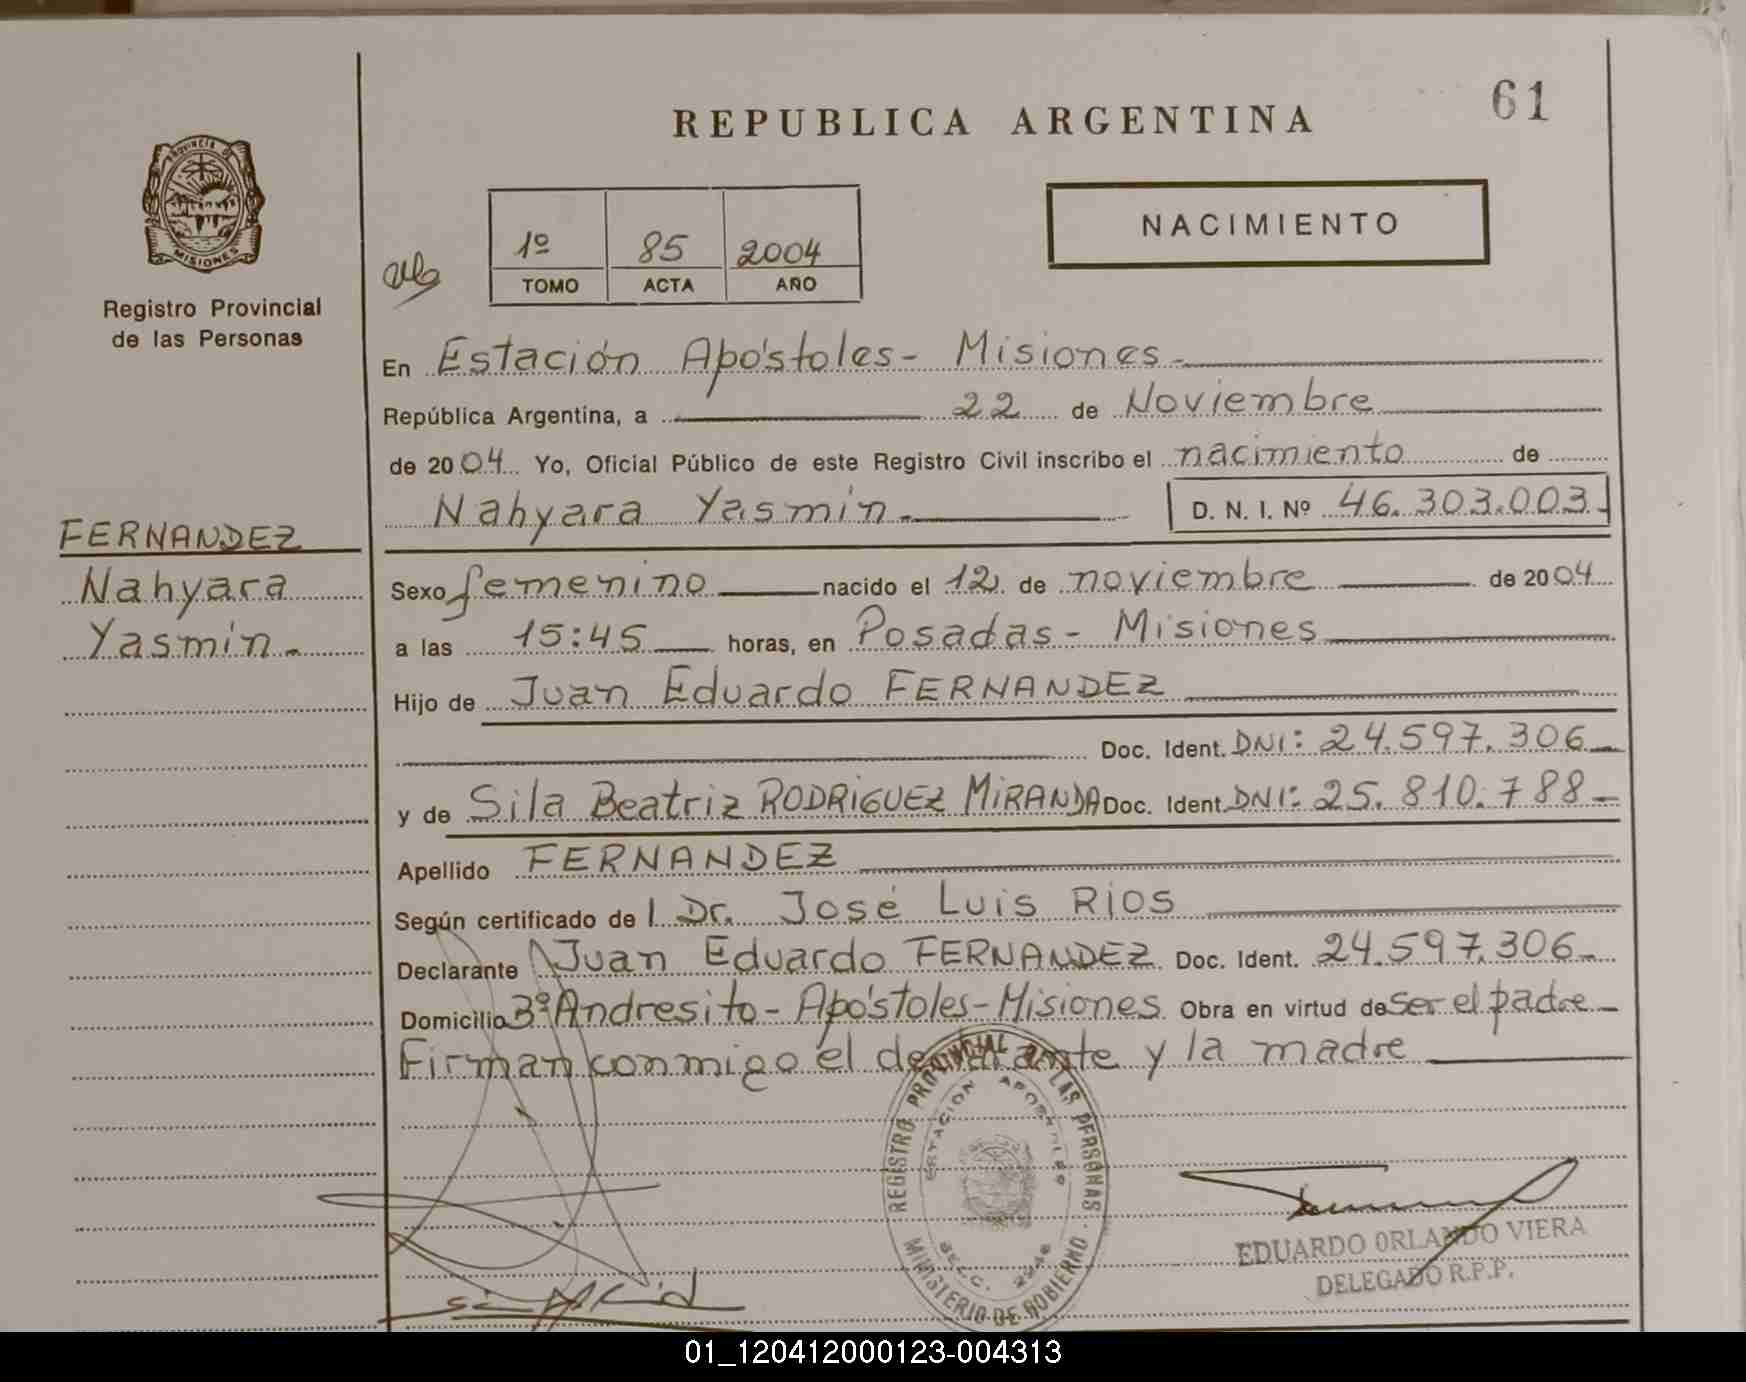 61
REPUBLICA ARGENTINA
PROVINCIA DE
MISIONES
Registro Provincial
de las Personas
1º 85 2004
TOMO ACTA AÑO
NACIMIENTO
En Estación Apóstoles - Misiones.-
República Argentina, a 22 de Noviembre
de 2004 Yo, Oficial Público de este Registro Civil inscribo el nacimiento de
Nahyara Yasmin.- D. N. I. Nº 46.303.003.-
FERNANDEZ
Nahyara
Yasmín.-
Sexo femenino nacido el 12 de noviembre de 2004
a las 15:45 horas, en Posadas - Misiones
Hijo de Juan Eduardo FERNANDEZ
Doc. Ident. DNI: 24.597.306-
y de Sila Beatriz RODRIGUEZ MIRANDA Doc. Ident. DNI: 25.810.788-
Apellido FERNANDEZ
Según certificado de l Dr. José Luis RIOS
Declarante Juan Eduardo FERNANDEZ Doc. Ident. 24.597.306-
Domicilio Bº Andresito - Apóstoles - Misiones Obra en virtud de ser el padre
Firman conmigo el declarante y la madre
REGISTRO PROVINCIAL DE LAS PERSONAS · MINISTERIO DE GOBIERNO
ESTACION APOSTOLES
EDUARDO ORLANDO VIERA
DELEGADO R.P.P.
01_120412000123-004313